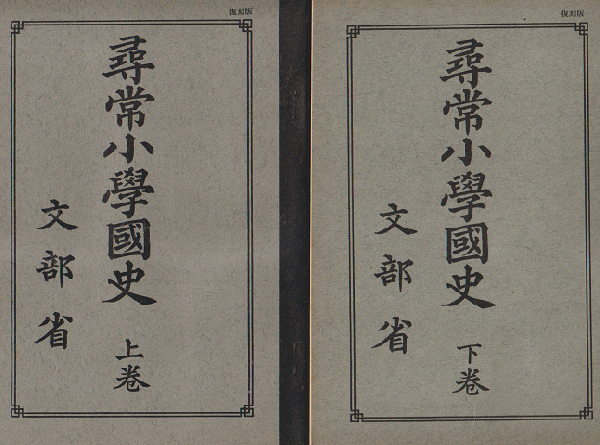 復刻版
尋常小學國史 上卷
文部省
復刻版
尋常小學國史 下卷
文部省